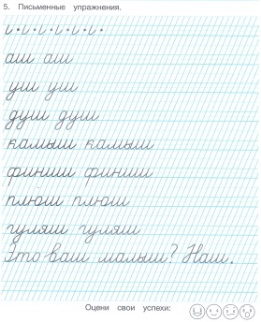 5. Письменные упражнения.
аш аш
уш уш
душ душ
камыш камыш
финиш финиш
плюш плюш
гуляш гуляш
Это ваш малыш? Наш.
Оцени свои успехи: